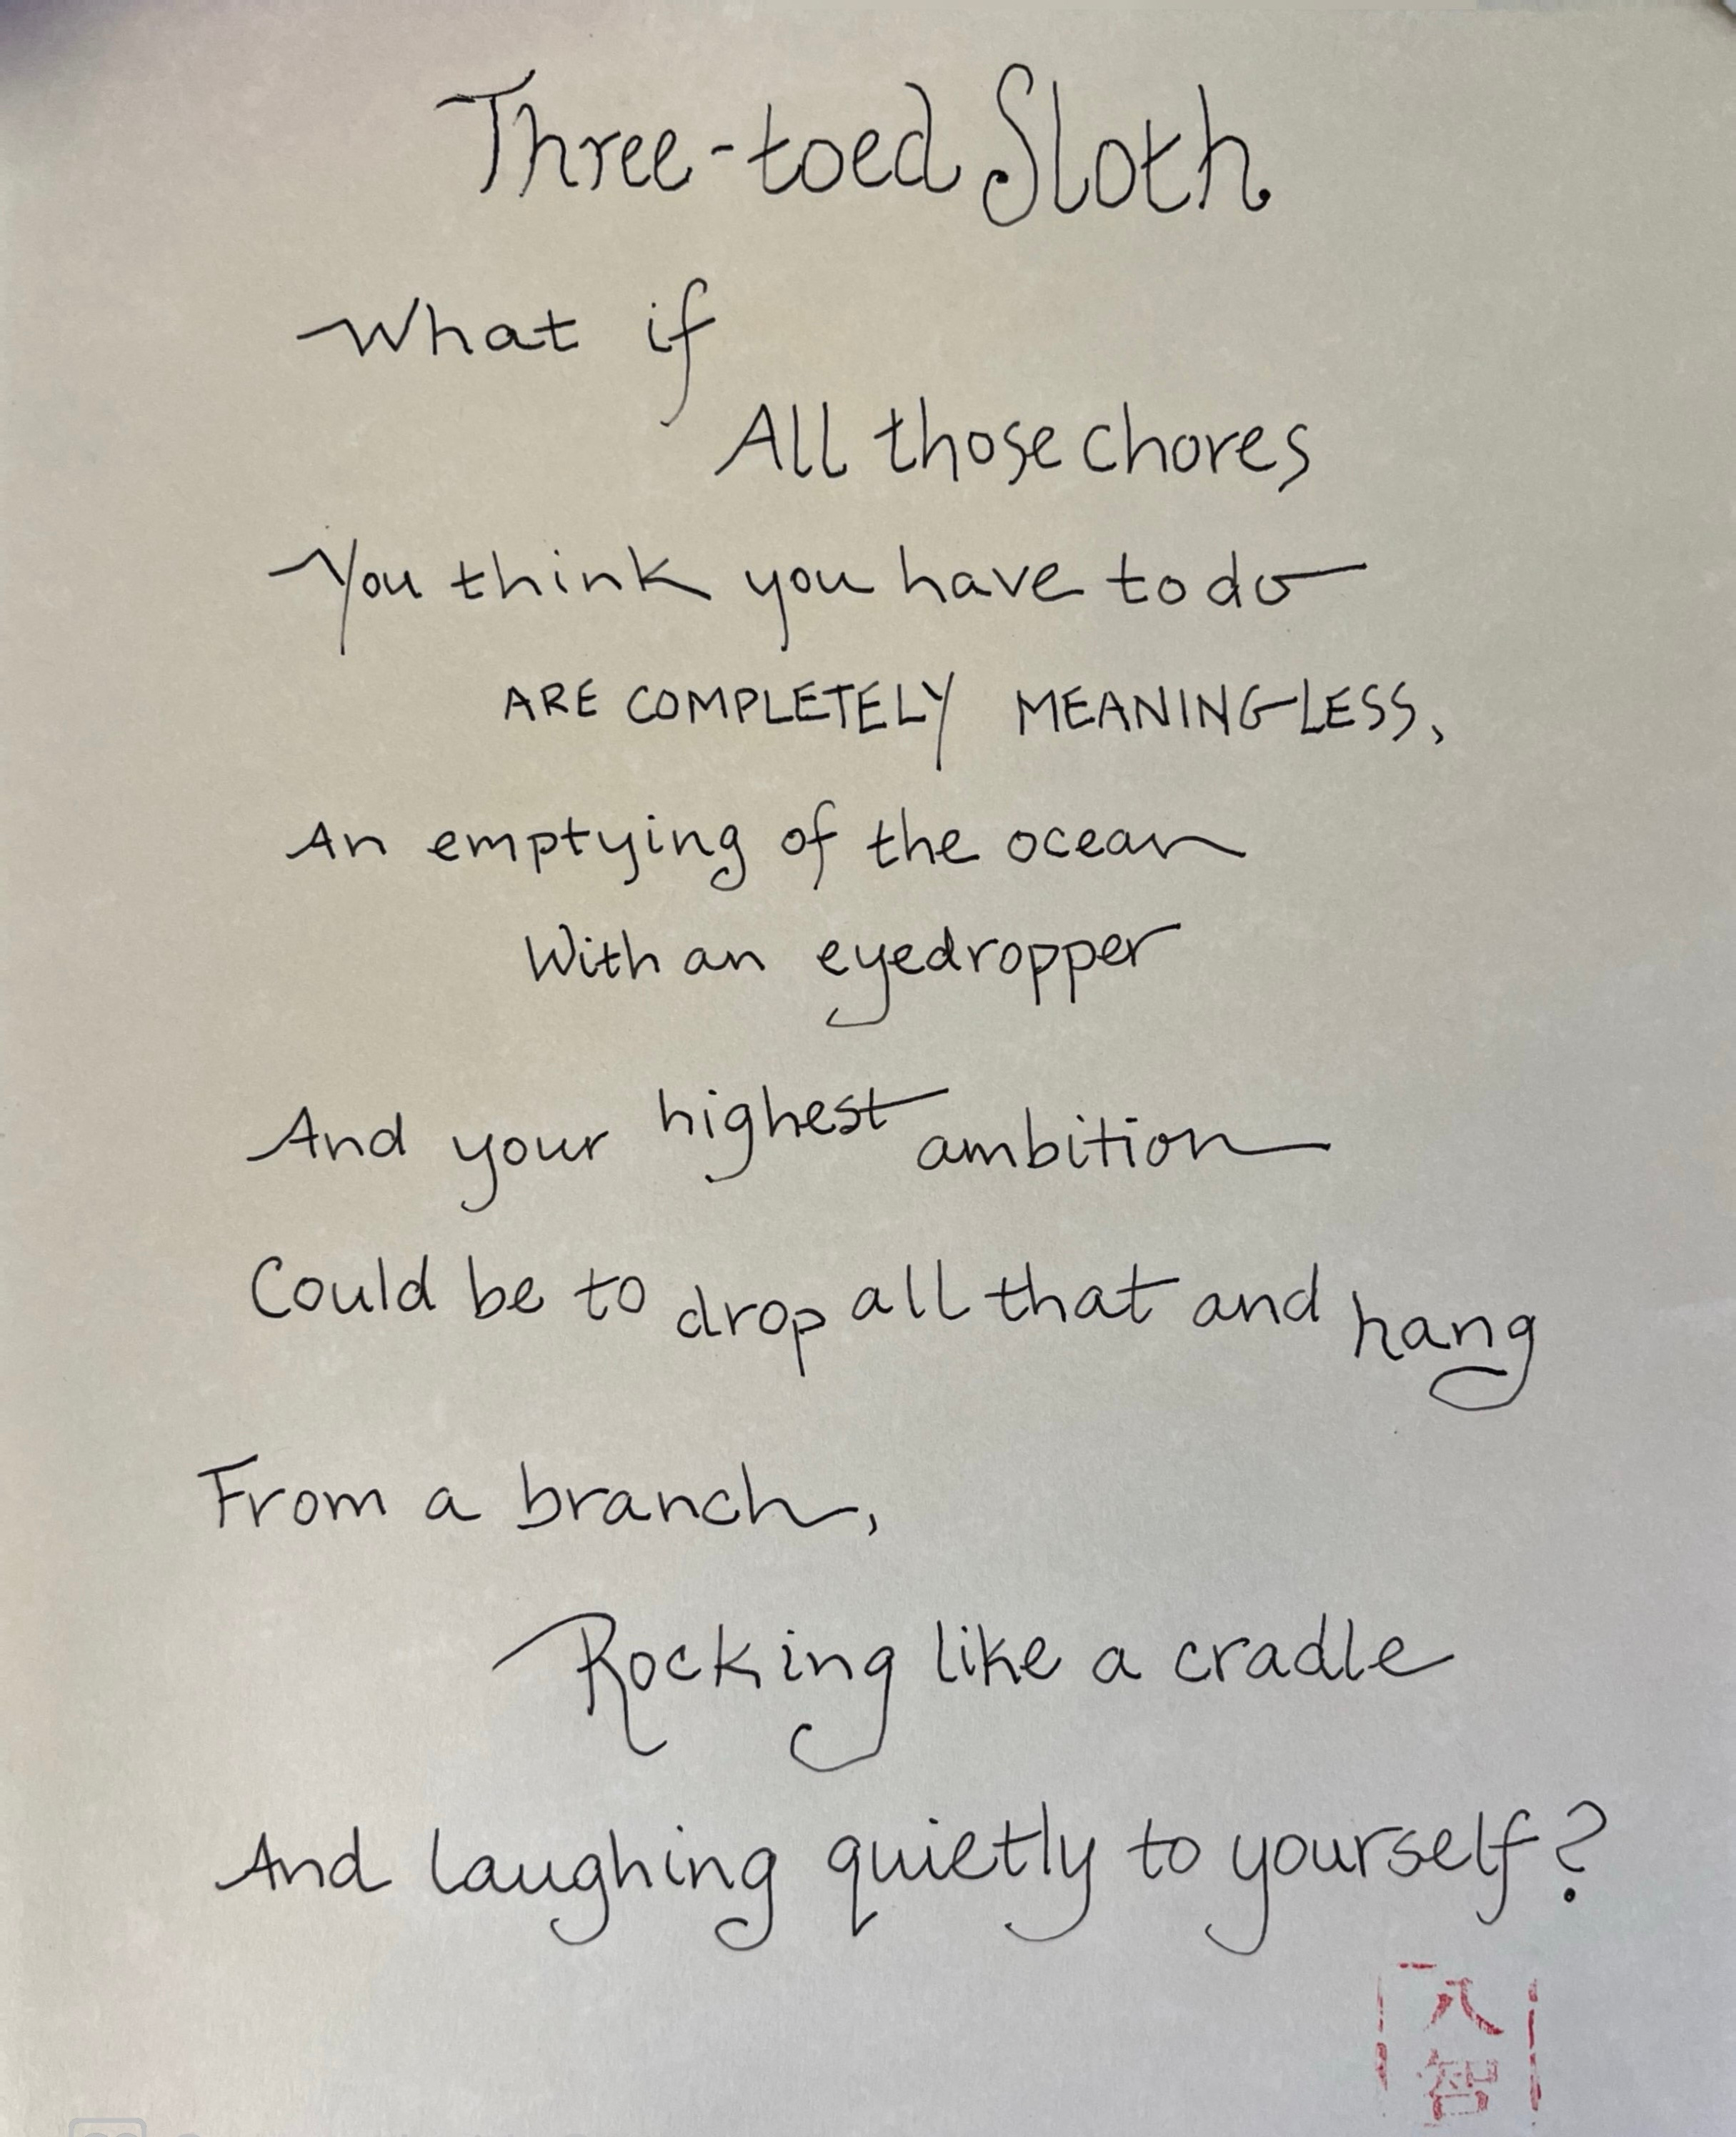 Three-toed Sloth
What if
All those chores
You think you have to do
ARE COMPLETELY MEANINGLESS,
An emptying of the ocean
With an eyedropper
And your highest ambition
Could be to drop all that and hang
From a branch,
Rocking like a cradle
And laughing quietly to yourself?
智